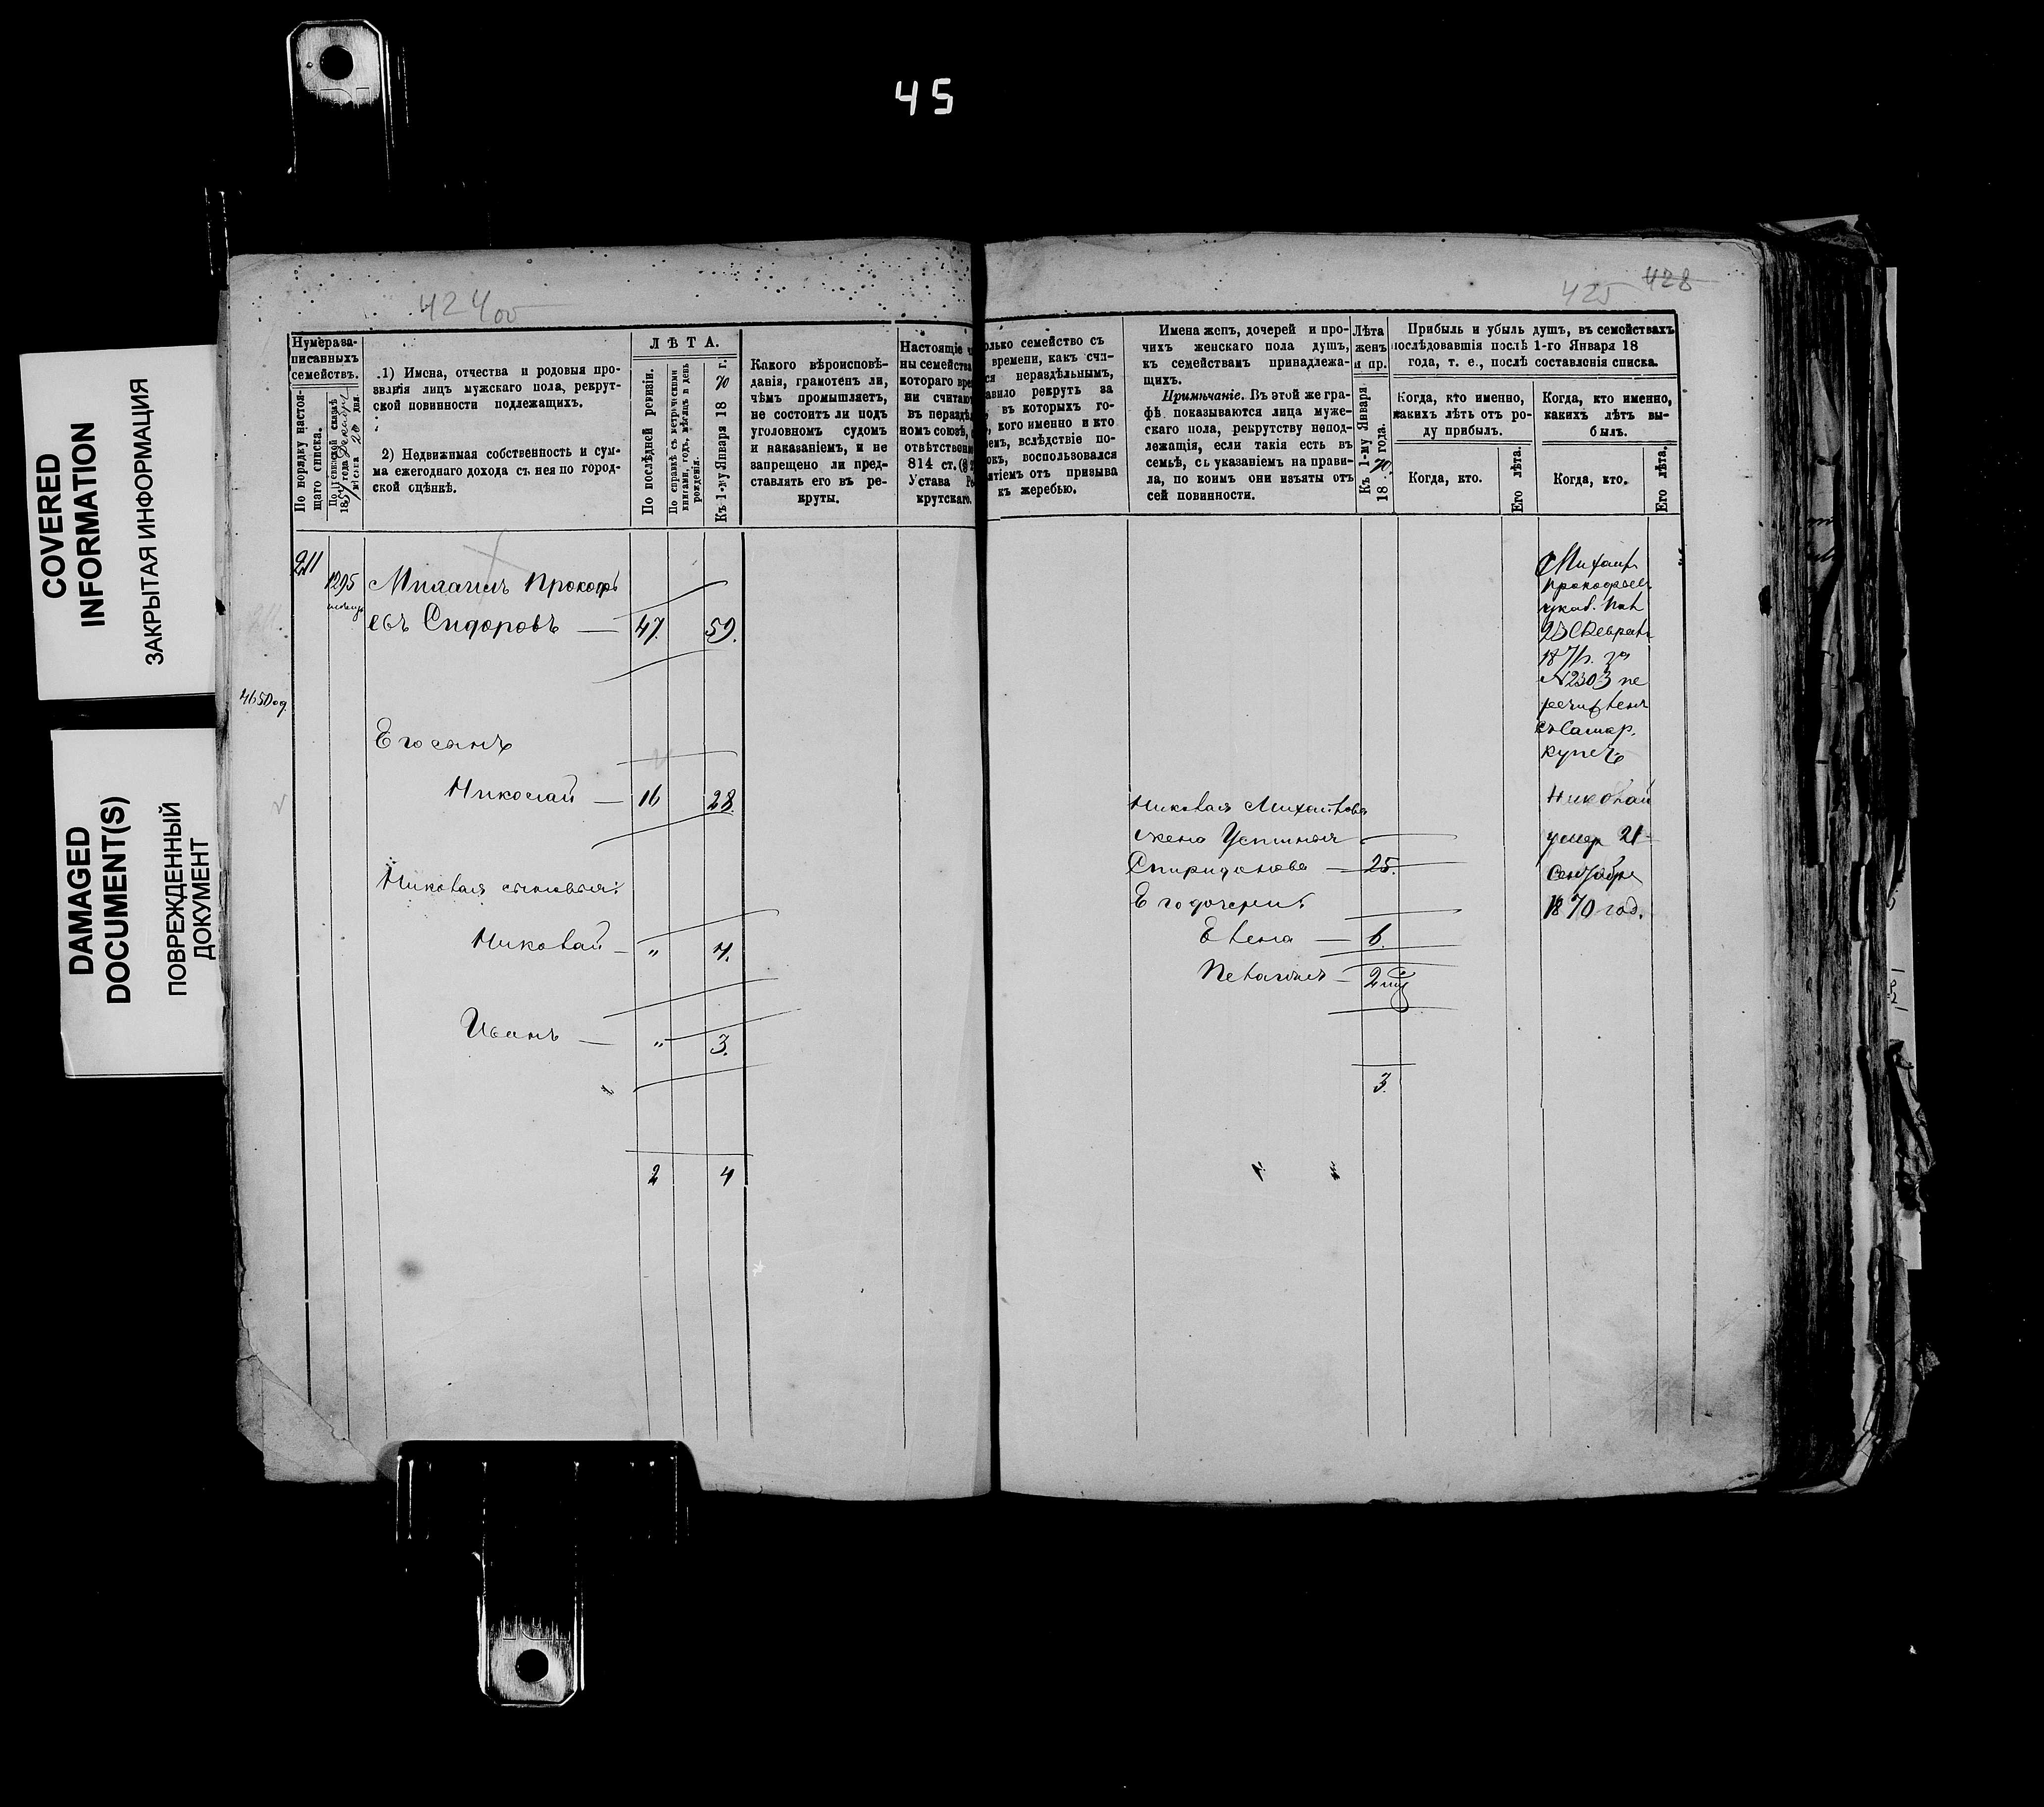 45
COVERED
INFORMATION
ЗАКРЫТАЯ ИНФОРМАЦИЯ
DAMAGED
DOCUMENT(S)
ПОВРЕЖДЕННЫЙ
ДОКУМЕНТ
424об
Нумера за-
писанныхъ
семействъ.
По порядку настоя-
щаго списка.
По ревизской сказкѣ
185 года Декабря
мѣсяца 20 дня.
1) Имена, отчества и родовыя про-
званія лицъ мужскаго пола, рекрут-
ской повинности подлежащихъ.
2) Недвижимая собственность и сум-
ма ежегоднаго дохода съ нея по город-
ской оцѣнкѣ.
ЛѢТА.
По послѣдней ревизіи.
По справкѣ съ метрическими
книгами, годъ, мѣсяцъ и день
рожденія.
Къ 1-му Января 18 70 г.
Какого вѣроисповѣ-
данія, грамотенъ ли,
чѣмъ промышляетъ,
не состоитъ ли подъ
уголовномъ судомъ
и наказаніемъ, и не
запрещено ли пред-
ставлять его въ ре-
круты.
Настоящіе ч
ны семейства
котораго вре
ни считаю
въ нераздѣ
номъ союзѣ,
отвѣтственн
814 ст. (8
Устава Ре
крутскаго.
211
1295
Михаилъ Прокофь
евъ Сидоровъ — 47. 59.
465 Дод.
Его сынъ
Николай — 16 28.
Николая сыновья:
Николай — " 4.
Иванъ — " 3.
2 4
425 428
олько семейство съ
времени, какъ счи-
ся нераздѣльнымъ,
авило рекрутъ за
въ которыхъ го-
, кого именно и кто
емъ, вслѣдствіе по-
окъ, воспользовался
ятіемъ отъ призыва
къ жеребью.
Имена женъ, дочерей и про-
чихъ женскаго пола душъ,
къ семействамъ принадлежа-
щихъ.
Примѣчаніе. Въ этой же гра-
фѣ показываются лица муже-
скаго пола, рекрутству непод-
лежащія, если такія есть въ
семьѣ, съ указаніемъ на прави-
ла, по коимъ они изъяты отъ
сей повинности.
Лѣта
женъ
и пр.
Къ 1-му Января
18 70 года.
Прибыль и убыль душъ, въ семействахъ
послѣдовавшія послѣ 1-го Января 18
года, т. е., послѣ составленія списка.
Когда, кто именно,
какихъ лѣтъ отъ ро-
ду прибылъ.
Когда, кто именно,
какихъ лѣтъ вы-
былъ.
Когда, кто.
Его лѣта.
Когда, кто.
Его лѣта.
Николая Михайлова
жена Устинья
Спиридонова — 25.
Его дочери:
Елена — 6.
Пелагея — 2
3.
Михаилъ
Прокофьевъ
указ. Пал
23 Февраля
1871г. за
№2303 пе
речисленъ
въ Самар.
купечъ
Николай
умер 21
Сентября
1870 год.